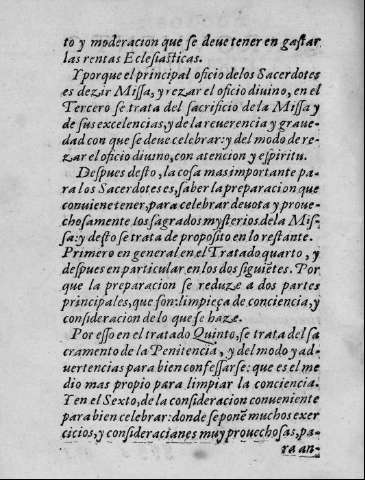 to y moderacion que se deue tener en gastar
las rentas Eclesiasticas.
Y porque el principal oficio delos Sacerdotes
es dezir Missa, y rezar el oficio diuino, en el
Tercero se trata del sacrificio dela Missa y
de sus excelencias, y de la reuerencia y graue-
dad con que se deue celebrar: y del modo de re-
zar el oficio diuino, con atencion y espiritu.
Despues desto, la cosa mas importante pa-
ra los Sacerdotes es, saber la preparacion que
conuiene tener, para celebrar deuota y proue-
chosamente los sagrados mysterios dela Mis-
sa: y desto se trata de proposito en lo restante.
Primero en general en el Tratado quarto, y
despues en particular en los dos siguiẽtes. Por
que la preparacion se reduze a dos partes
principales, que son: limpieça de conciencia, y
consideracion de lo que se haze.
Por esso en el tratado Quinto, se trata del sa
cramento de la Penitencia, y del modo y ad-
uertencias para bien confessarse: que es el me
dio mas propio para limpiar la conciencia.
Y en el Sexto, de la consideracion conueniente
para bien celebrar: donde se ponẽ muchos exer
cicios, y consideraciones muy prouechosas, pa-
ra an-